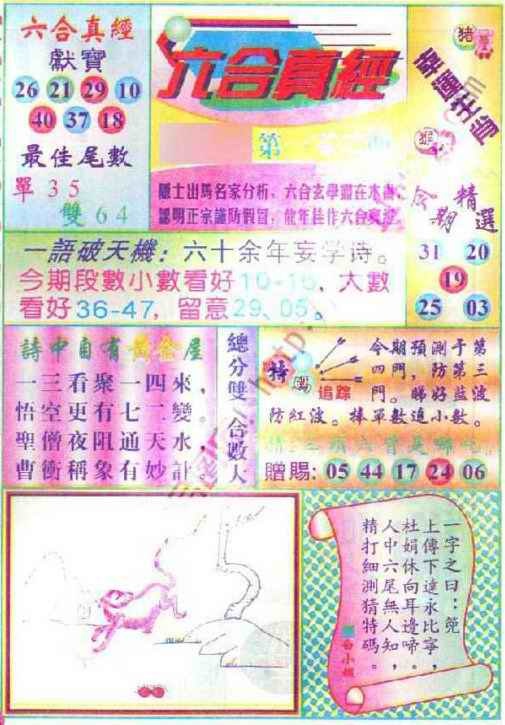 六合真經
獻寶
26 21 29 10
40 37 18
最佳尾數
單 3 5
雙 6 4
六合真經
第
豬
幸運生肖
今期精選
31 20
19
25 03
一語破天機：六十余年妄学诗。
今期段數小數看好10-15，大數
看好36-47，留意29、05。
詩中自有黃金屋
一三看聚一四來，
悟空更有七二變。
聖僧夜阻通天水，
曹衝稱象有妙計。
總分雙 合數大
特碼
追踪
今期預測于第
四門，防第三
門。睇好藍波
防紅波。捧單數追小數。
贈賜：05 44 17 24 06
一字之曰：蒐
上傳下達永比寧，
杜娟休向耳邊啼，
人中六尾無人知，
精打細測猜特碼。
白小姐